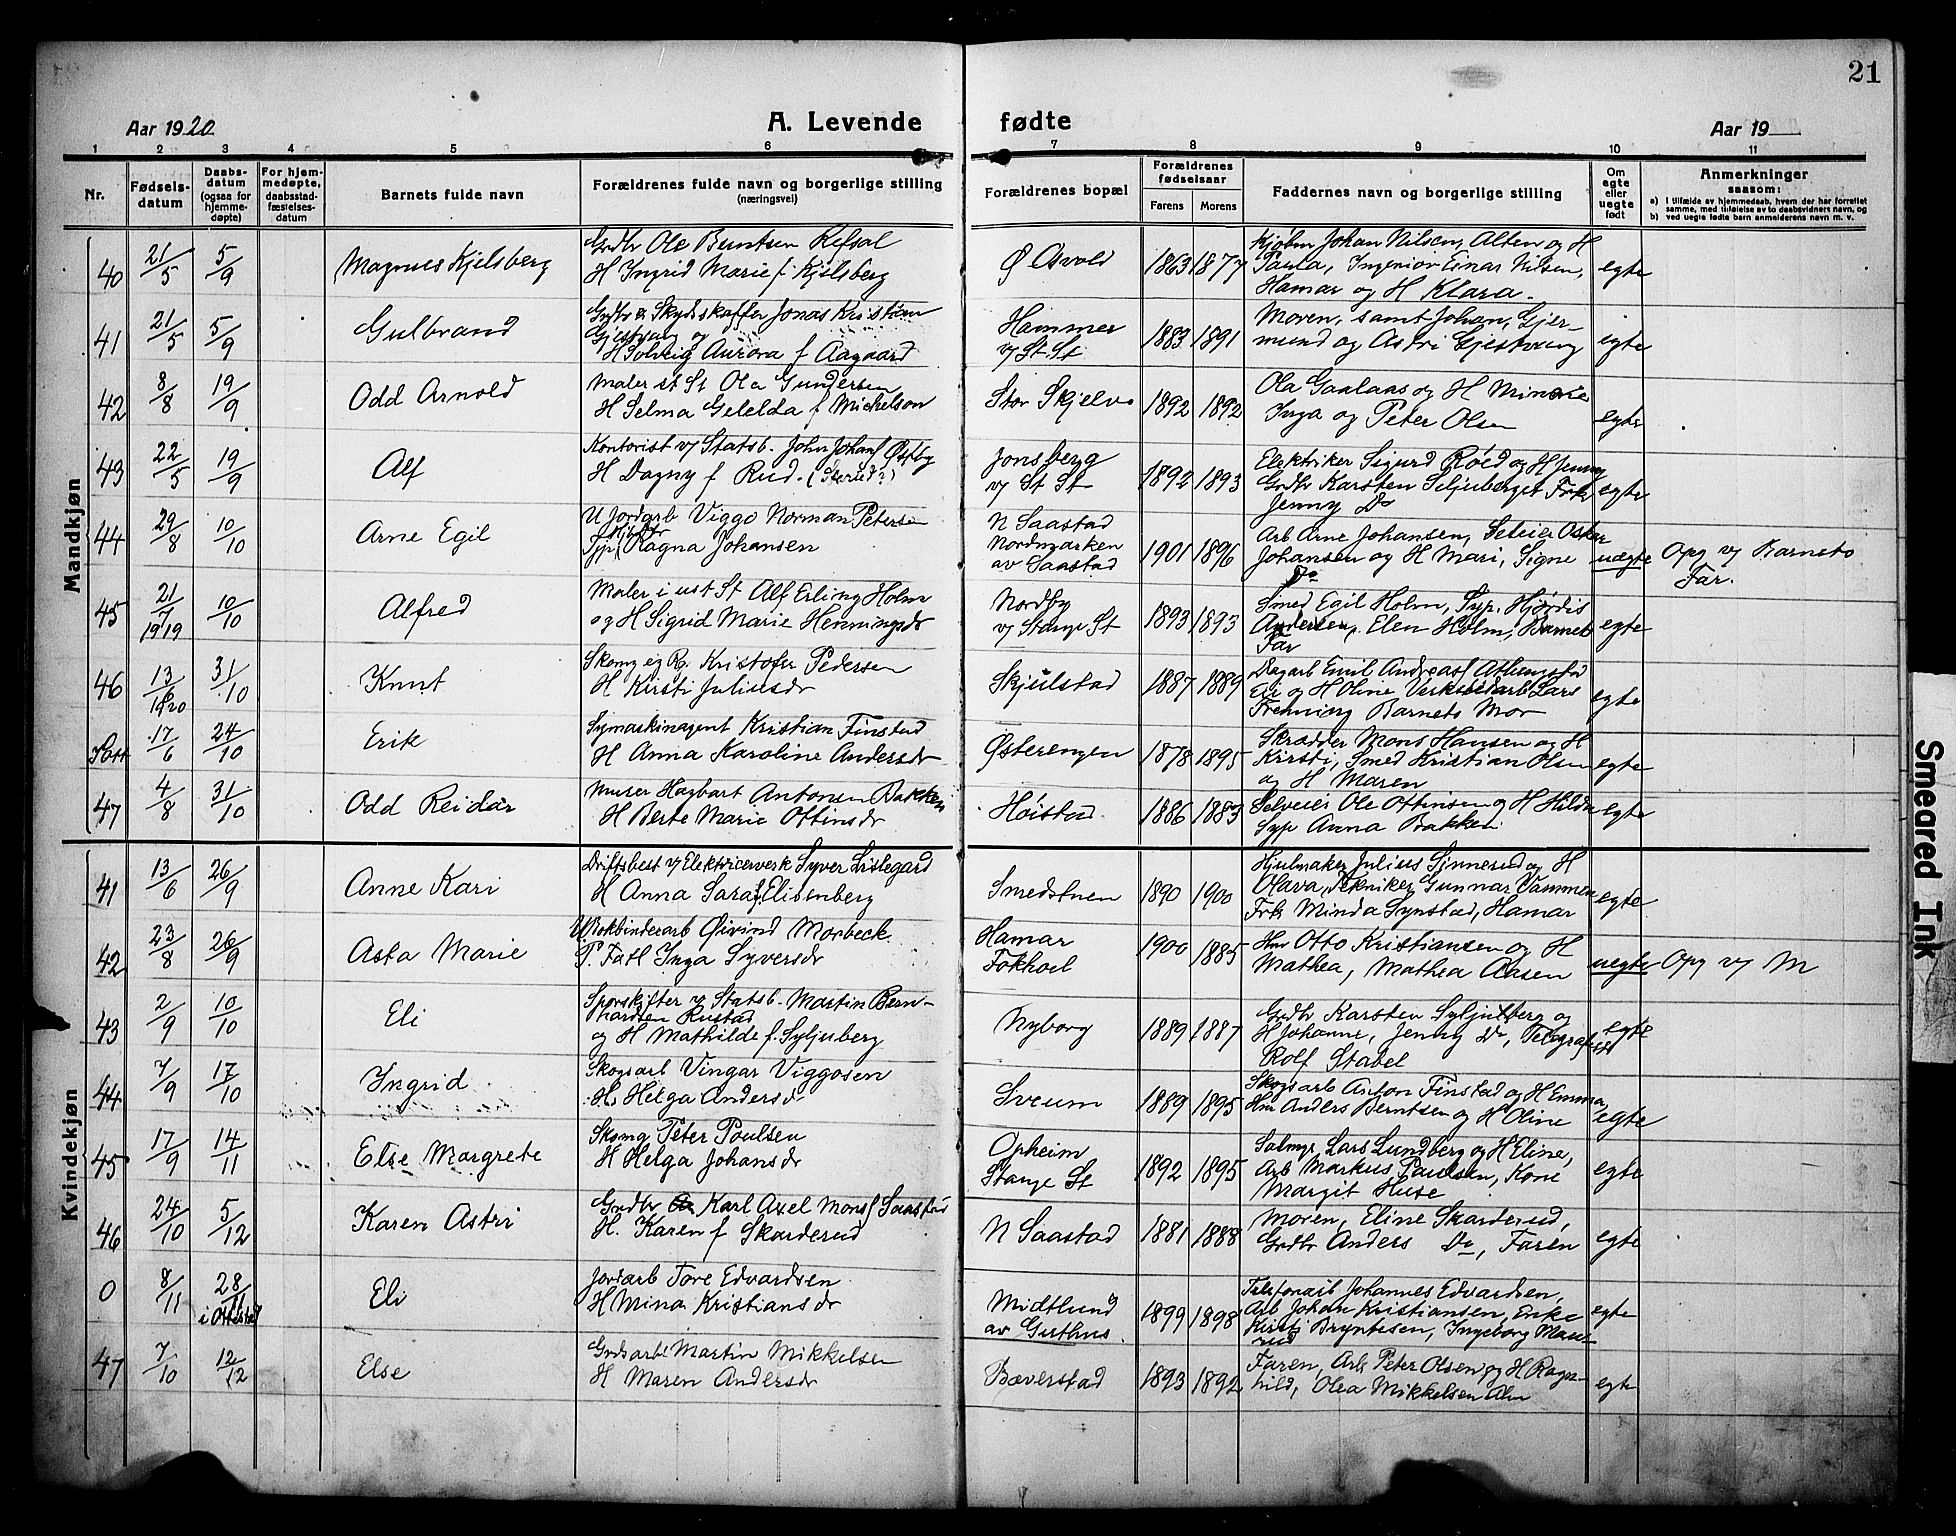 21
Aar 1920
A. Levende fødte
Aar 19
1 2 3 4 5 6 7 8 9 10 11
Nr.
Fødselsdatum
Daabsdatum (ogsaa for hjemmedøpte)
For hjemmedøpte, daabsstadfæstelsesdatum
Barnets fulde navn
Forældrenes fulde navn og borgerlige stilling
(næringsvei)
Forældrenes bopæl
Forældrenes fødselsaar
Farens Morens
Faddernes navn og borgerlige stilling
Om egte eller uegte født
Anmerkninger
saasom:
a) I tilfælde av hjemmedaab, hvem der har forrettet
samme, med tilføielse av to daabsvidners navn, og
b) ved uegte fødte barn anmelderens navn m. v.
Mandkjøn
40 21/5 5/9 Magnus Kjelsberg
Grdbr Ole Buntsen Refsal
H Ingrid Marie f. Kjelsberg
Ø Asvold 1863 1877
Kjøbm Johan Nilsen, Alten og H
Paula, Ingeniør Einar Nilsen,
Hamar og H Klara.
egte
41 21/5 5/9 Gulbrand
Grdbr & Skydsskaffer Jonas Kristian
Gjestvang og
H Solveig Aurora f Aagaard
Hammer
v/ St. St 1883 1891
Moren, samt Johan, Gjer-
mund og Astri Gjestvang
egte
42 8/8 19/9 Odd Arnold
Maler st St Ola Gundersen
H Selma f Mickelson
Stor Skjelve 1892 1892
Ola Gaalaas og H Minnie
Inga og Peter Olsen
egte
43 22/5 19/9 Alf
Kontorist v/ Statsb. John Johans Østby
H Dagny f Rud.
Jonsberg
v/ St St 1892 1893
Elektriker Sigurd Røed og H Jenny
Grdbr Karsten Seljuberget Frk
Jenny Do
egte
44 29/8 10/10 Arne Egil
U Jordarb Viggo Norman Petersen
P Ragna Johansen
N Saastad
Nordmarken
av Saastad 1901 1896
Arb Arne Johansen, Seleier Oskar
Johansen og H Mari, Signe
Do
uegte
Opg v/ Barnets
Far.
45 21/7 1919 10/10 Alfred
Maler i ust St Alf Erling Holm
og H Sigrid Marie Henningsdr
Nordby
v/ Stange St 1893 1893
Smed Egil Holm, Syp. Hjørdis
Andersen, Elen Holm, Barnets
Far
egte
46 13/6 1920 31/10 Knut
Skomg eg Rg. Kristofer Pedersen
H Kirsti Juliusdr
Skjulstad 1887 1889
Dagarb Emil Andreas
Eli og H Oline Verkstedarb Lars
Frenning Barnets Mor
egte
17/6 24/10 Erik
Symaskinagent Kristian Finstad
H Anna Karoline Andersdr
Østerengen 1878 1895
Skrædder Mons Hansen og H
Kirsti, Smed Kristian Olsen
og H Maren
egte
47 4/8 31/10 Odd Reidar
Murer Hagbart Antonsen Bakken
H Berte Marie Ottinsdr
Høistad 1886 1883
Selveier Ole Ottinsen og H Hilda
Syp Anna Bakken
egte
Kvindekjøn
41 13/6 26/9 Anne Kari
Driftsbest v/ Elektricerverk Syver Listegard
H Anna Sara f. Elisenberg
Smedstuen 1890 1900
Hjulmaker Julius Sinnerud og H
Olava, Tekniker Gunnar Vammen
Frk Minda Synstad, Hamar
egte
42 23/8 26/9 Asta Marie
U Bokbinderarb Øivind Morbeck
P. Fatl Inga Syversdr
Hamar
Fokhoel 1900 1885
Hm Otto Kristiansen og H
Mathea, Mathea Aasen
uegte
Opg v/ M
43 2/9 10/10 Eli
Sporskifter v/ Statsb. Martin Bern-
hardsen Rustad
og H Mathilde f. Syljuberg
Nyborg 1889 1887
Grdbr Karsten Syljuberg og
H Johanne, Jenny Do, Telegrafist
Rolf Stabel
egte
44 7/9 17/10 Ingrid
Skogsarb Vingar Viggosen
H. Helga Andersdr
Sveum 1889 1895
Skogsarb Anton Finstad og H Emma,
Hm Anders Berntsen og H Oline
egte
45 17/9 14/11 Else Margrete
Skomg Peter Poulsen
H Helga Johansdr
Opheim
Stange St 1892 1895
Salmgr Lars Lundberg og H Eline,
Arb Markus Paulsen, Kone
Margit Huse
egte
46 24/10 5/12 Karen Astri
Grdbr Karl Axel Mons Saastad
H. Karen f Skarderud
N Saastad 1881 1888
Moren, Eline Skarderud,
Grdbr Anders Do, Faren
egte
0 8/11 28/11 i Ottestad Eli
Jordarb Tore Edvardsen
H Mina Kristiansdr
Midtlund
av Guthus 1899 1898
Telefonarb Johannes Edvardsen,
Arb Johan Kristiansen, Enke
Kirsti Bryntesen, Ingeborg Mau-
rud
egte
47 7/10 12/12 Else
Grdsarb Martin Mikkelsen
H Maren Andersdr
Bæverstad 1893 1892
Faren, Arb Peter Olsen og H Ragn-
hild, Olea Mikkelsen Alm
egte
Smeared Ink